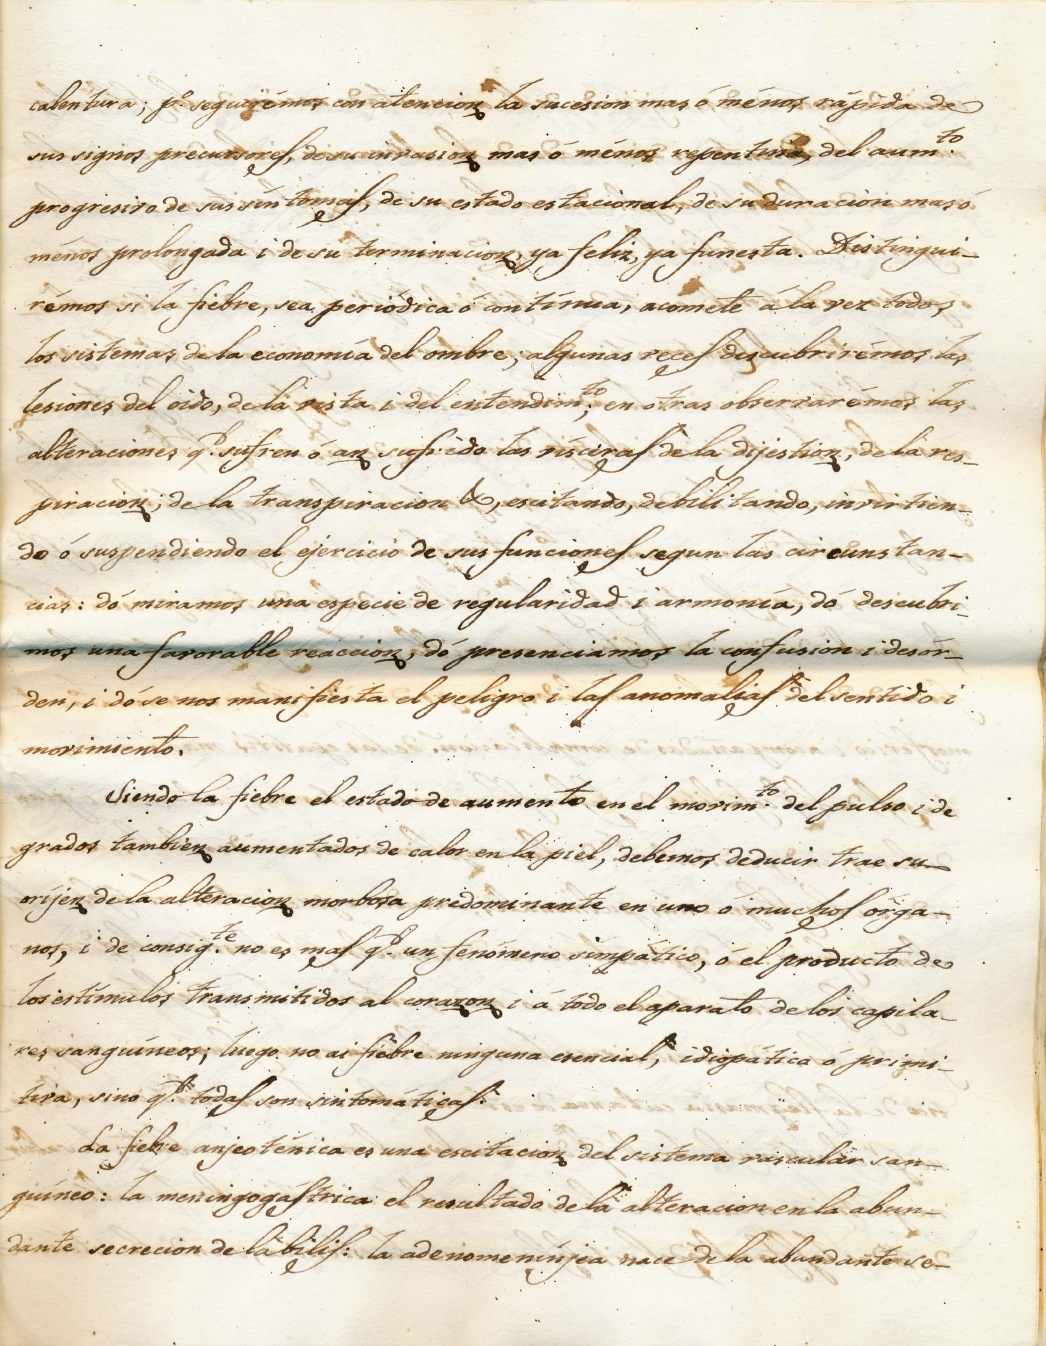 calentura; p.º seguirémos con atencion la sucesion mas ó ménos rápida de
sus signos precursores, de su invasion mas ó ménos repentina, del aum.to
progresivo de sus síntomas, de su estado estacional, de su duracion mas ó
ménos prolongada i de su terminacion, ya feliz, ya funesta. Distingui-
rémos si la fiebre, sea periódica ó contínua, acomete á la vez todos
los sistemas de la economía del ombre; algunas veces descubrirémos las
lesiones del oido, de la vista i del entendim.to; en otras observarémos las
alteraciones q.e sufren ó an sufrido las vísceras de la dijestion, de la res-
piracion; de la transpiracion &, escitando, debilitando, invirtien-
do ó suspendiendo el ejercicio de sus funciones segun las circunstan-
cias: dó miramos una especie de regularidad i armonía, dó descubri-
mos una favorable reaccion, dó presenciamos la confusion i desór-
den, i dó se nos manifiesta el peligro i las anomalias del sentido i
movimiento.
Siendo la fiebre el estado de aumento en el movim.to del pulso i de
grados tambien aumentados de calor en la piel, debemos deducir trae su
oríjen de la alteracion morbosa predominante en uno ó muchos órga-
nos, i de consig.te no es mas q.e un fenómeno simpático, ó el producto de
los estímulos transmitidos al corazon i á todo el aparato de los capila-
res sanguíneos; luego no ai fiebre ninguna esencial, idiopática ó primi-
tiva, sino q.e todas son sintomáticas.
La fiebre anjeoténica es una escitacion del sistema vascular san-
guíneo: la meningogástrica el resultado de la alteracion en la abun-
dante secrecion de la bilis: la adenomeninjea nace de la abundante se-